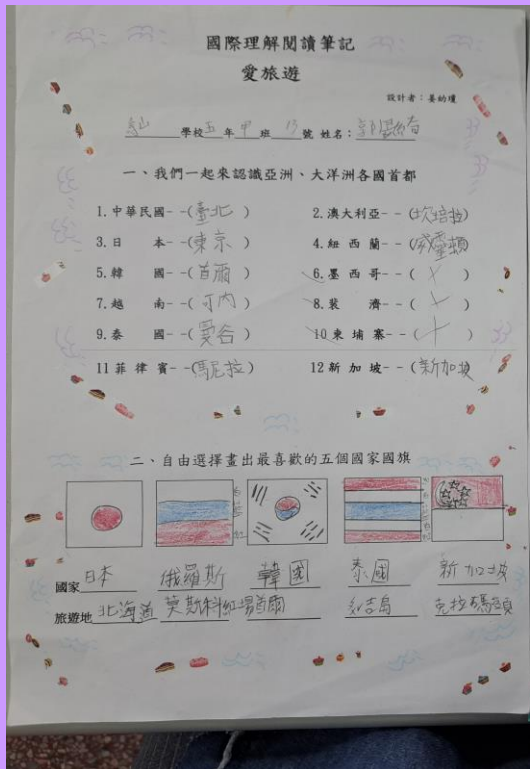 國際理解閱讀筆記
愛旅遊
設計者：姜幼瓊
學校五年甲班 號 姓名：
一、我們一起來認識亞洲、大洋洲各國首都
1.中華民國--(臺北) 2.澳大利亞--(坎培拉)
3.日 本--(東京) 4.紐西蘭--(威靈頓)
5.韓 國--(首爾) 6.墨西哥--( )
7.越 南--(河內) 8.裴 濟--( )
9.泰 國--(曼谷) 10柬埔寨--( )
11菲律賓--(馬尼拉) 12新加坡--(新加坡)
二、自由選擇畫出最喜歡的五個國家國旗
國家 日本 俄羅斯 韓國 泰國 新加坡
旅遊地 北海道 莫斯科紅場 首爾 克拉碼頭